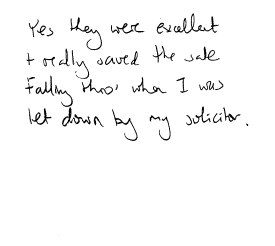 Yes they were excellent
+ really saved the sale
Falling thro' when I was
let down by my solicitor.